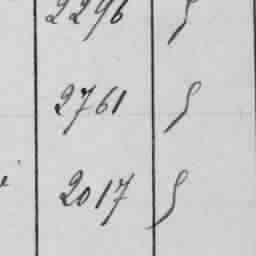 2296 S
2761 S
2017 S